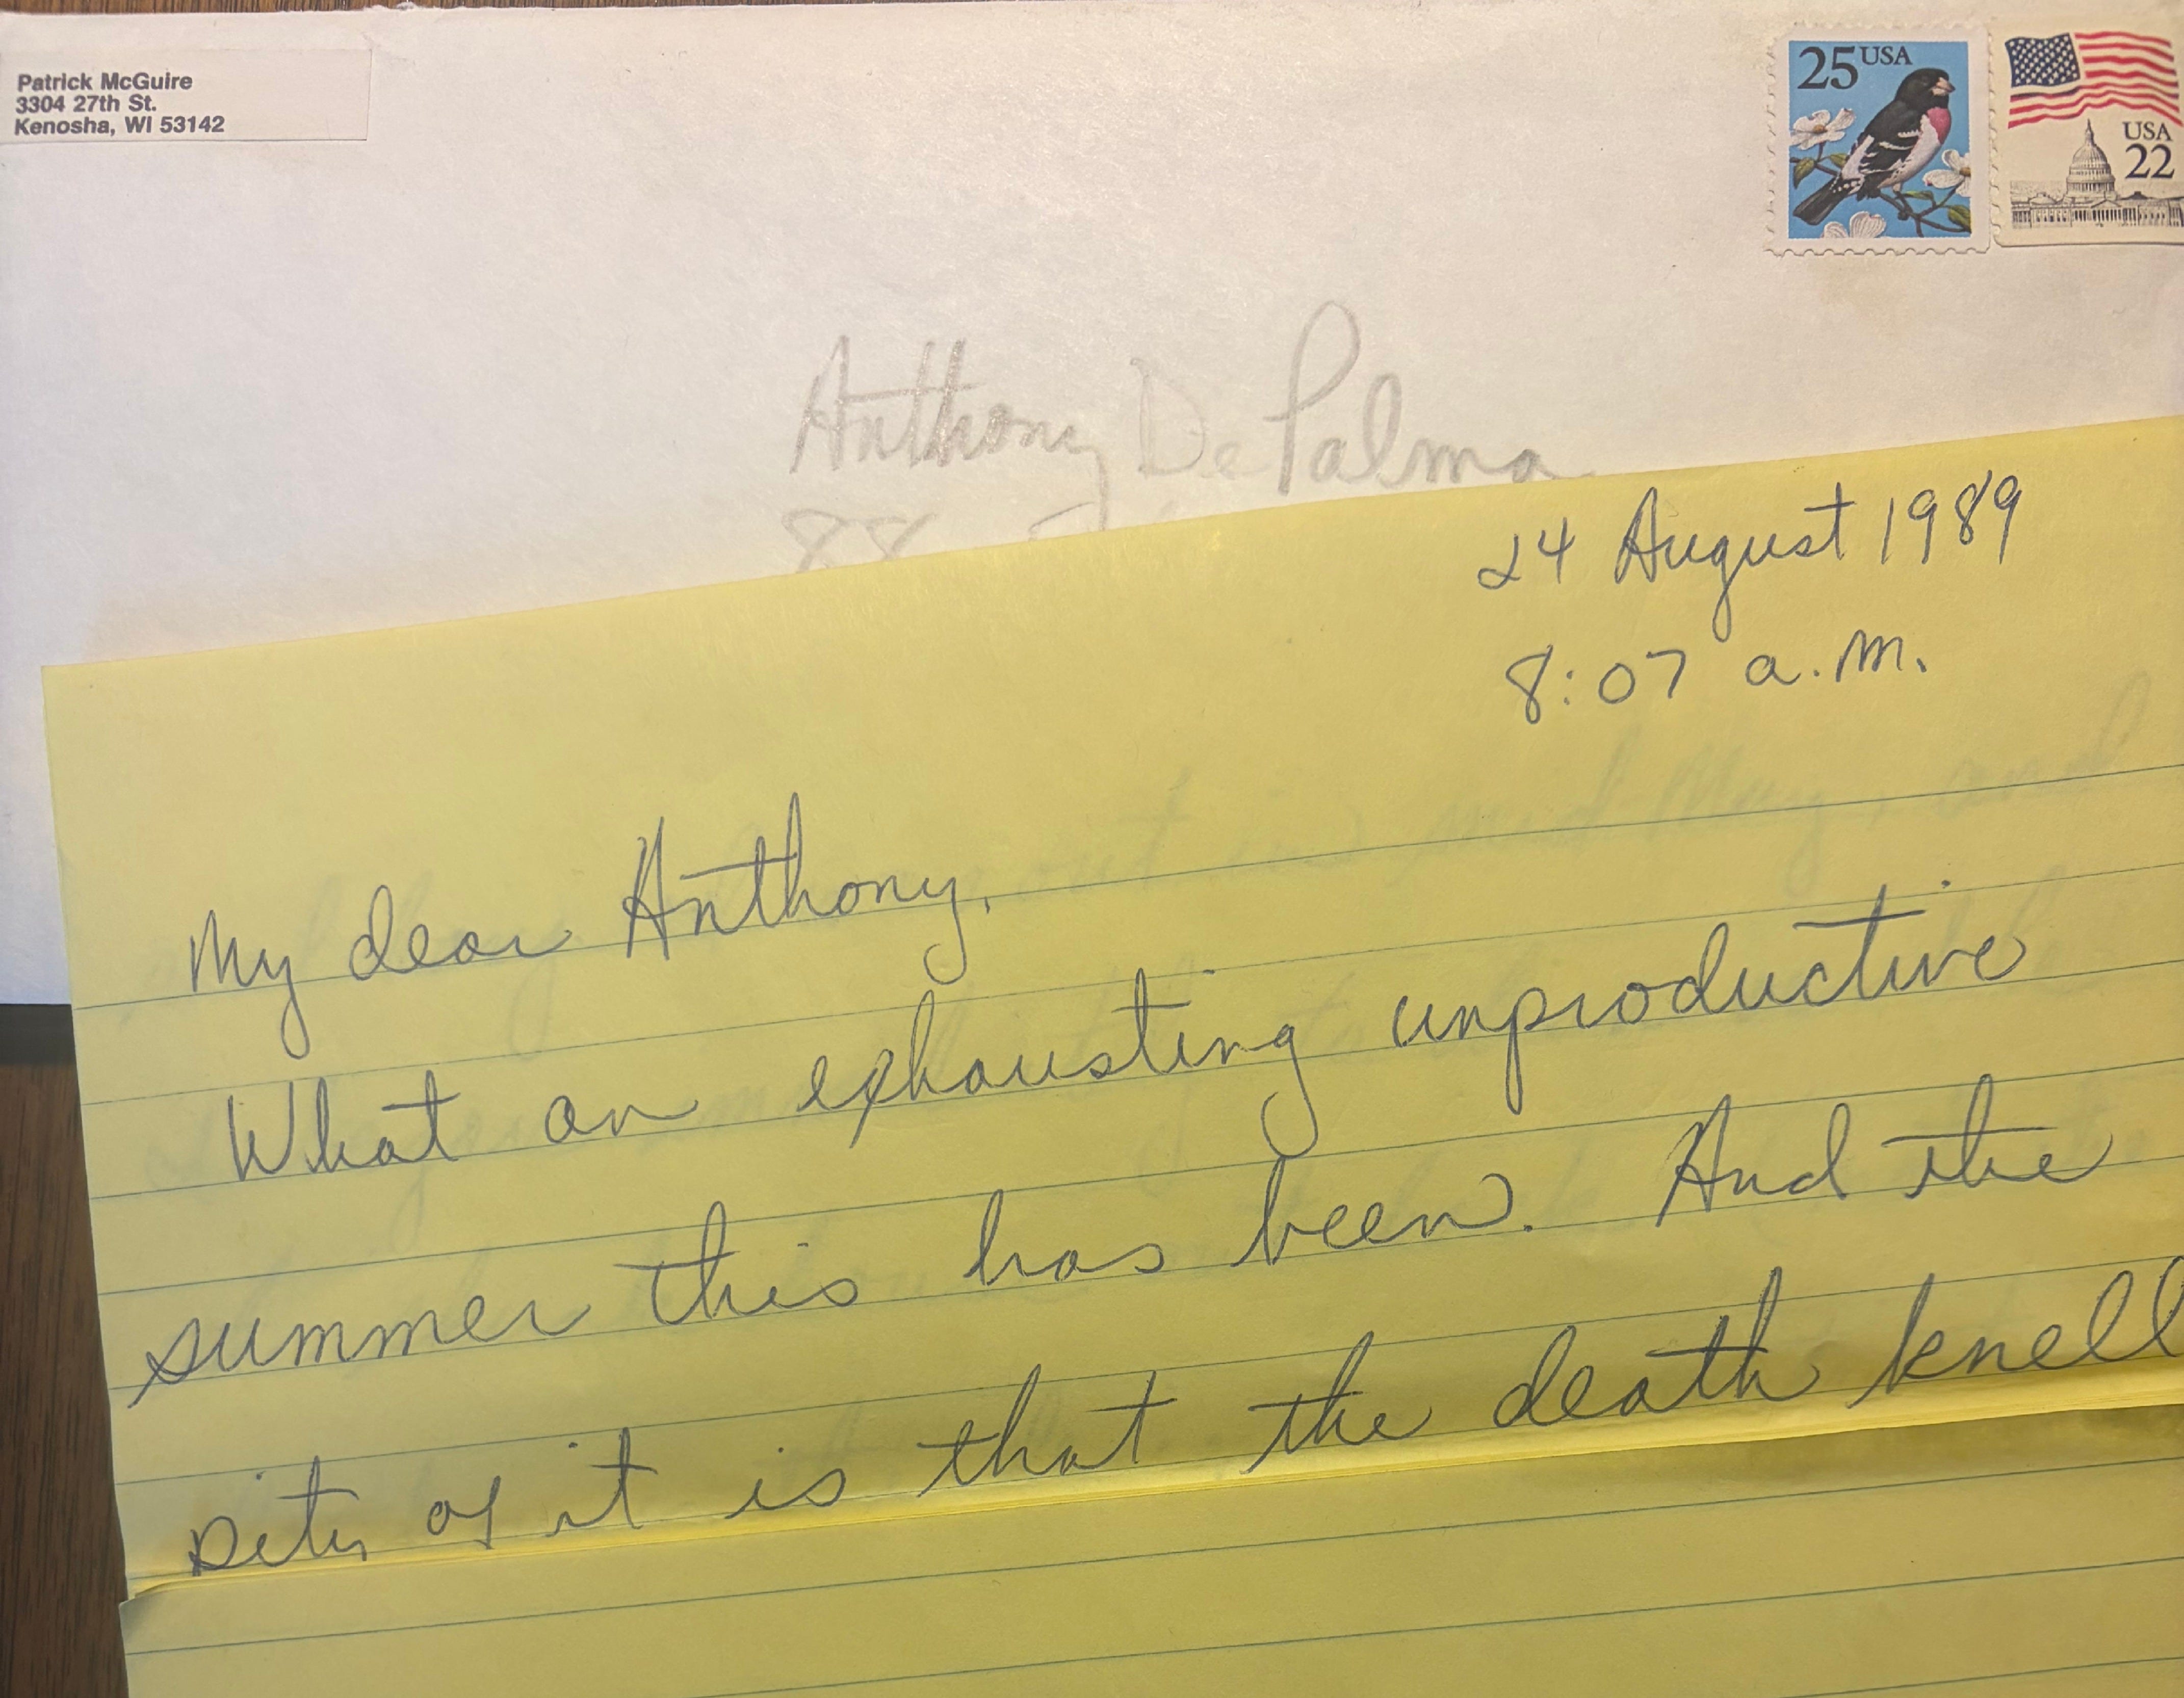 Patrick McGuire
3304 27th St.
Kenosha, WI 53142
25 USA
USA
22
Anthony De Palma
88
24 August 1989
8:07 a.m.
My dear Anthony,
What an exhausting unproductive
summer this has been. And the
pity of it is that the death knell